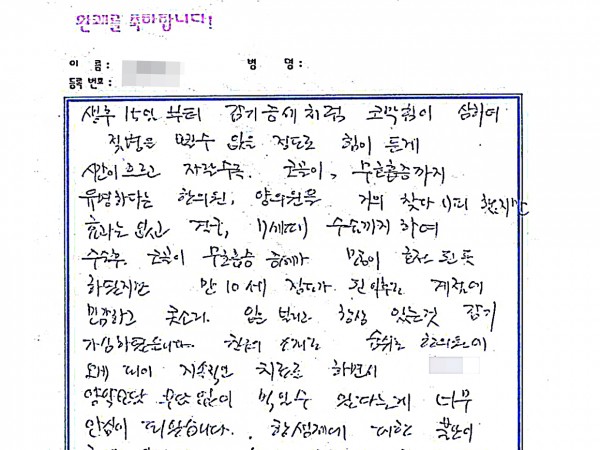 완쾌를 축하합니다!
이 름 : 병 명 :
등록 번호 :
생후 15일 부터 감기 증세처럼 코막힘이 심하여
젖병은 빨수 없을 정도로 힘이 들게
시간이 흐르고 자랄수록 코골이, 무호흡증까지
유명하다는 한의원, 양의원을 거의 찾다시피 했지만
효과는 없고 결국, 수술까지 하여
수술후 코골이 무호흡증 증세가 많이 호전 된듯
하였지만 만 10세 정도가 된 계절에
민감하고 콧소리. 입을 벌리고 항상 있는것 감기
친구의 소개로 한의원에
오게 되어 지속적인 치료를 하면서
양약보다 부담없이 먹일수 있다는게 너무
안심이 되었습니다. 항생제에 대한 불안이